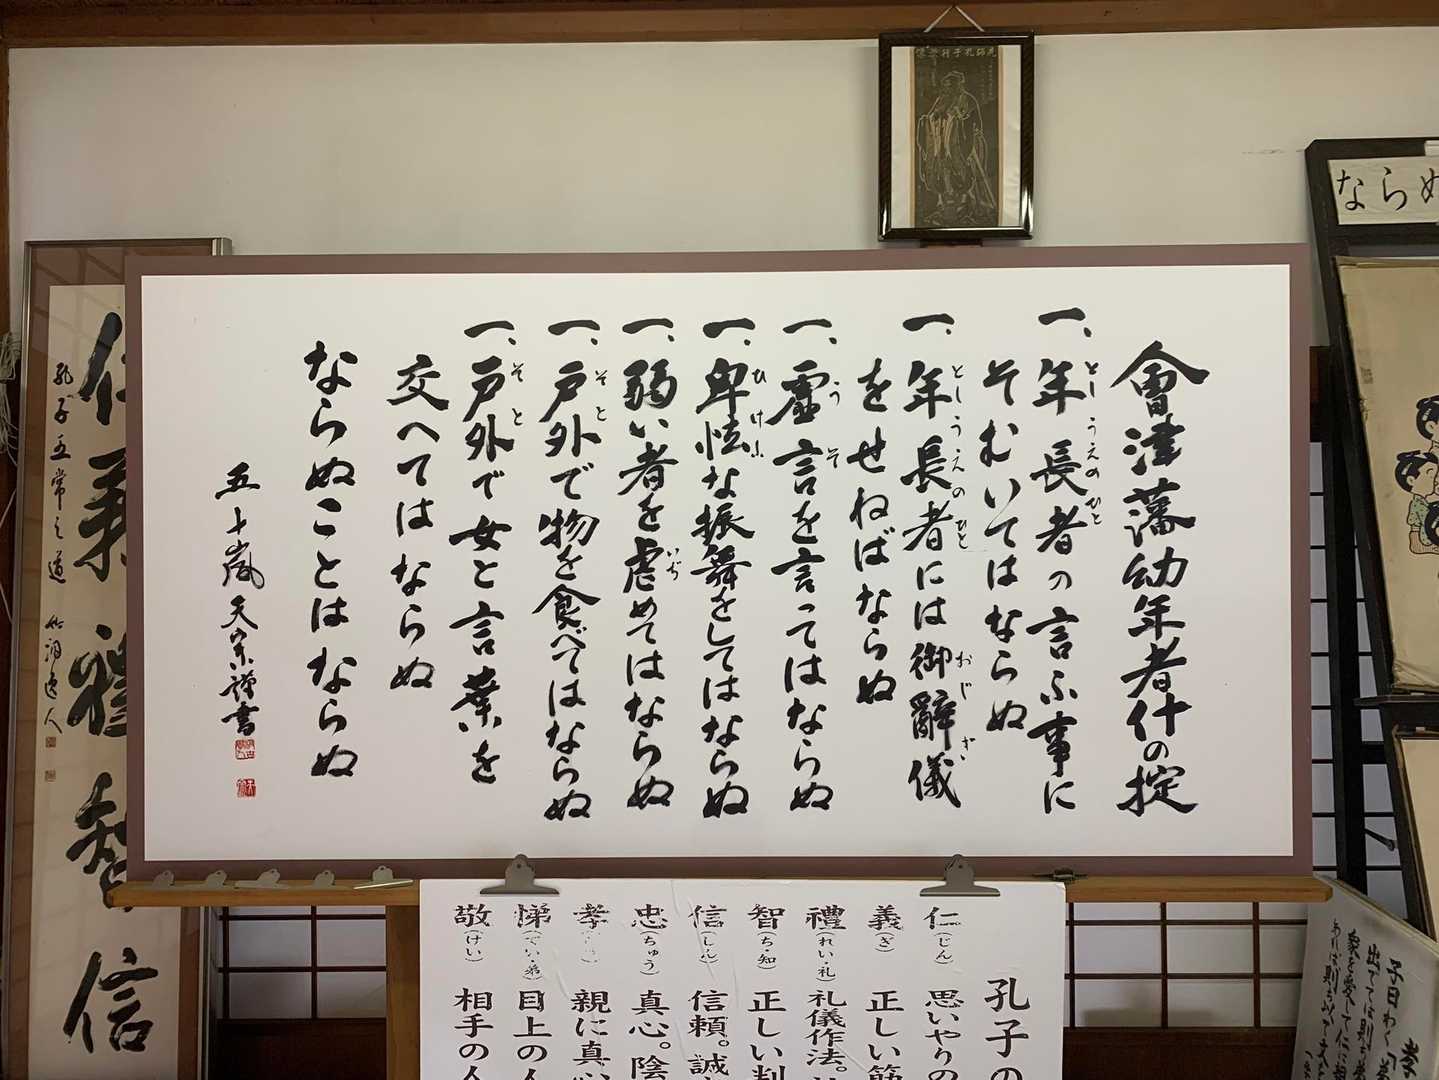 會津藩幼年者什の掟
一、年長者の言ふ事に
としうえのひと
そむいてはならぬ
一、年長者には御辭儀
としうえのひと
おじぎ
をせねばならぬ
一、虚言を言ってはならぬ
うそ
一、卑怯な振舞をしてはならぬ
ひけふ
一、弱い者を虐めてはならぬ
いぢ
一、戸外で物を食べてはならぬ
そと
一、戸外で女と言葉を
そと
交へてはならぬ
ならぬことはならぬ
五十嵐天
謹書
ならぬ
孔子の
仁(じん) 思いやりの
義(ぎ) 正しい筋
禮(れい・礼) 礼儀作法。
智(ち・知) 正しい判
信(しん) 信頼。誠
忠(ちゅう) 真心。陰
孝 親に真
悌(てい・弟) 目上の人
敬(けい) 相手の人
義禮智信
孔子五常之道
子曰わく
出でては則ち